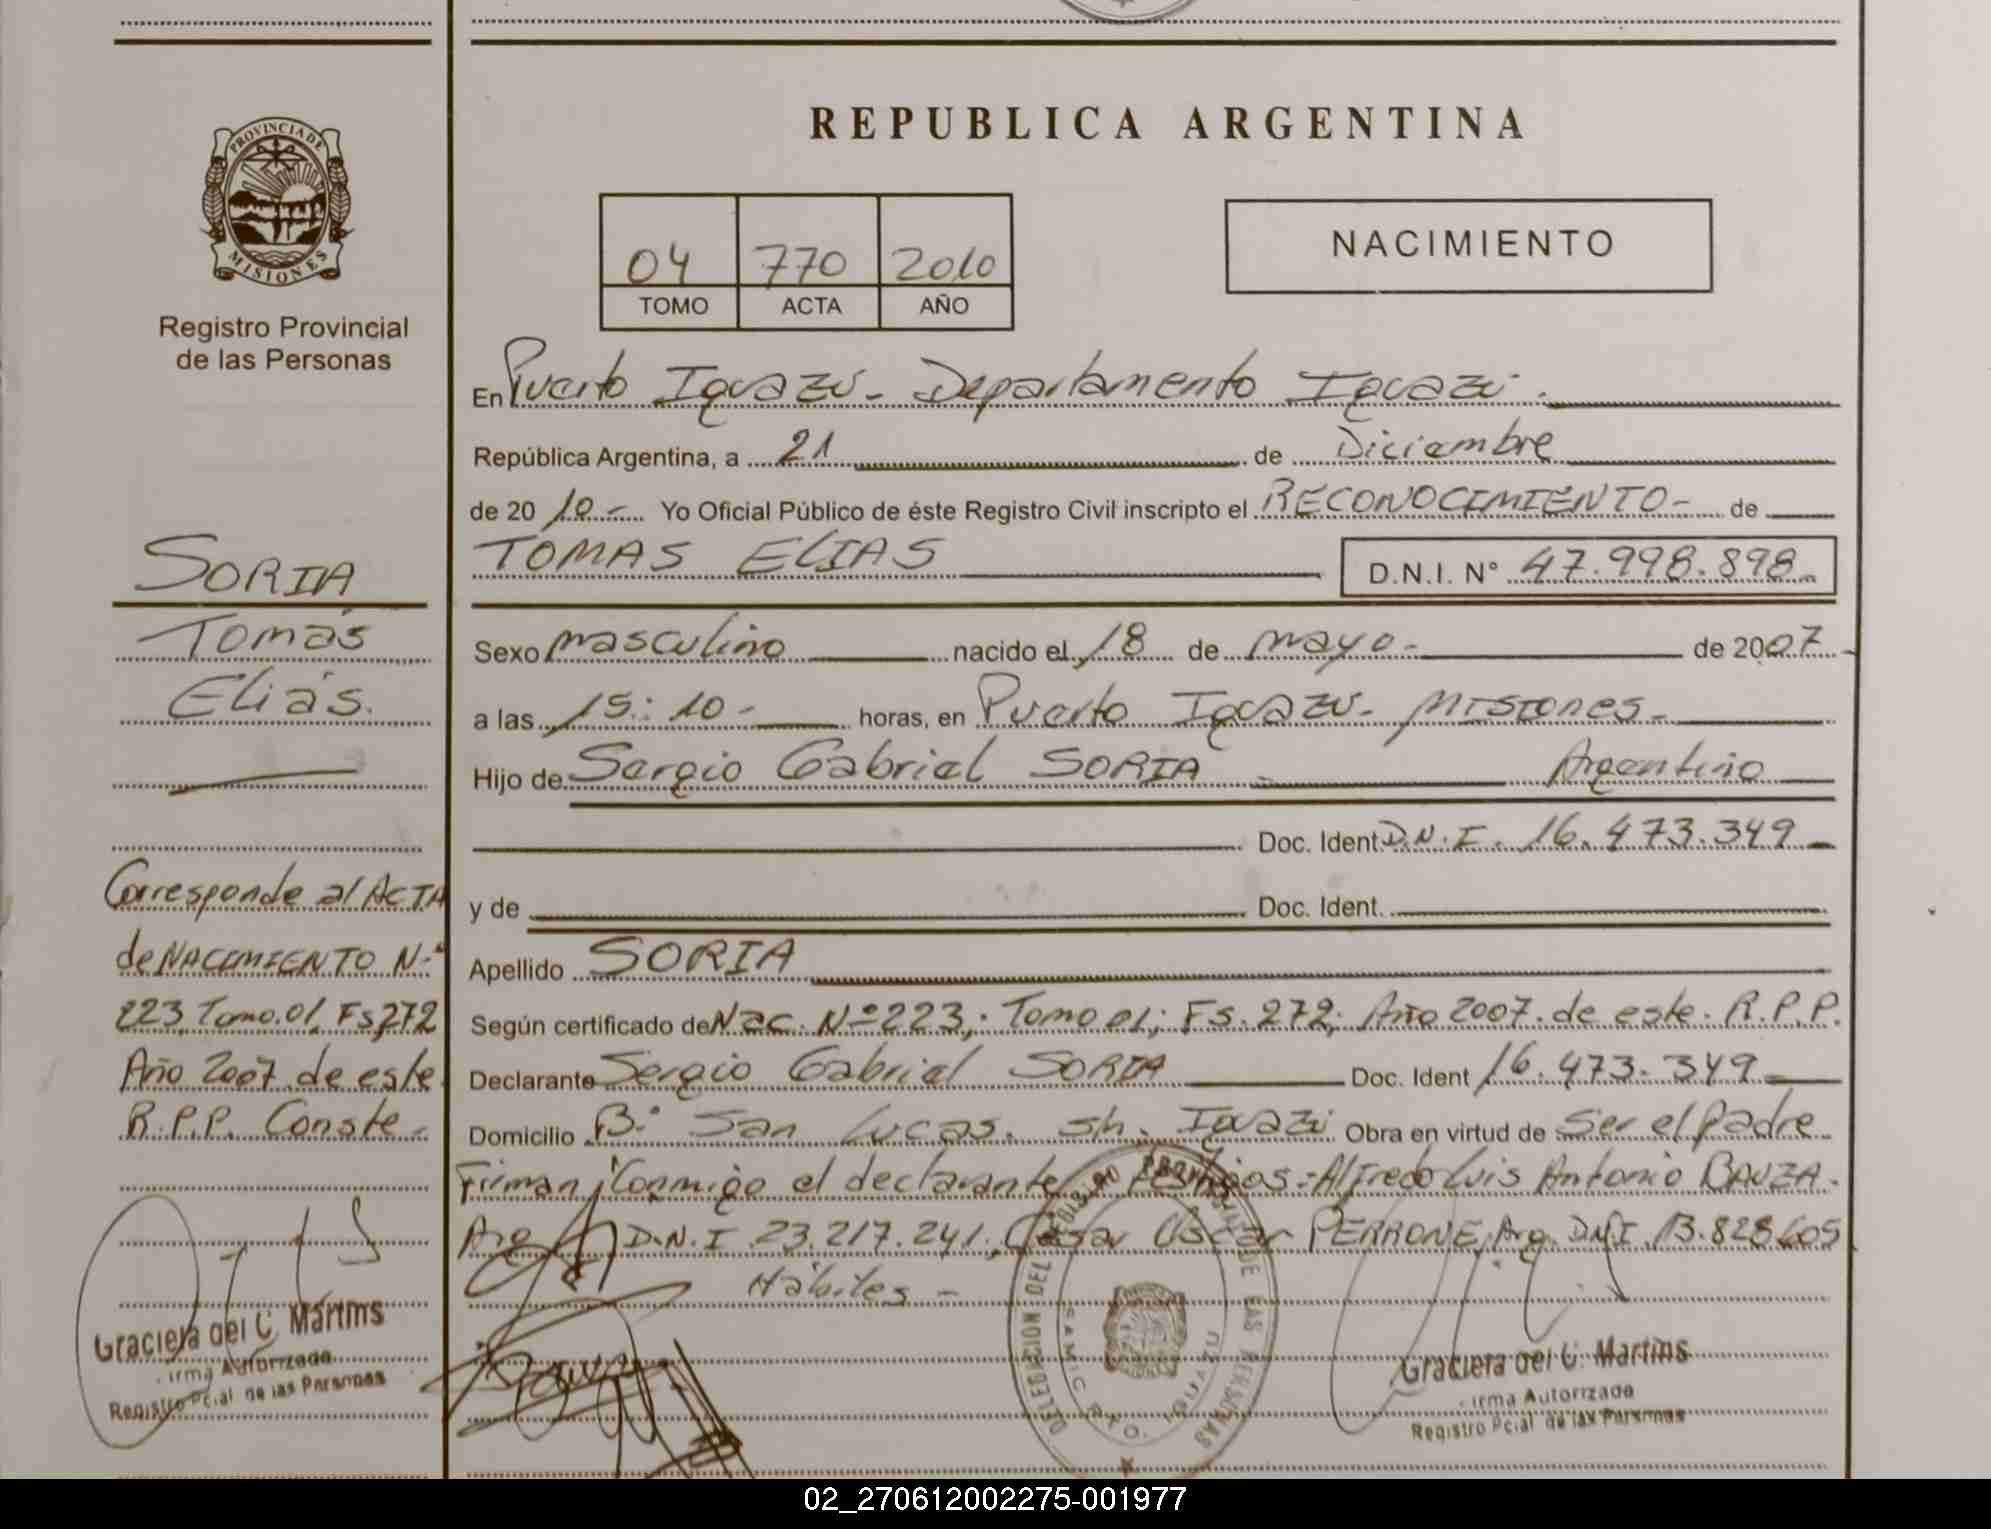 PROVINCIA DE
MISIONES
Registro Provincial
de las Personas
SORIA
Tomás
Elías.
Corresponde al ACTA
de NACIMIENTO N.º
223, Tomo.01, Fs,272
Año 2007 de este
R.P.P. Conste -
Graciela del C. Martins
Firma Autorizada
Registro Pcial de las Personas
REPUBLICA ARGENTINA
04 770 2010
TOMO ACTA AÑO
NACIMIENTO
En Puerto Iguazú - Departamento Iguazú.
República Argentina, a 21 de Diciembre
de 20 10 - Yo Oficial Público de éste Registro Civil inscripto el RECONOCIMIENTO - de
TOMAS ELIAS D.N.I. Nº 47.998.898
Sexo masculino nacido el 18 de mayo - de 2007
a las 15:10 - horas, en Puerto Iguazú - MISIONES -
Hijo de Sergio Gabriel SORIA Argentino
Doc. Ident D.N.I. 16.473.349
y de Doc. Ident.
Apellido SORIA
Según certificado de Nac. Nº 223; Tomo 01; Fs. 272; Año 2007 de este R.P.P.
Declarante Sergio Gabriel SORIA Doc. Ident 16.473.349
Domicilio Bº San Lucas. s/n. Iguazú Obra en virtud de Ser el padre
Firman Conmigo el declarante, testigos: Alfredo Luis Antonio BAUZA -
Arg. D.N.I 23.217.241, César Oscar PERRONE, Arg. DNI. 13.828.605
Hábiles -
DELEGACION DEL REGISTRO PROVINCIAL DE LAS PERSONAS
Graciela del C. Martins
Firma Autorizada
Registro Pcial de las Personas
02_270612002275-001977